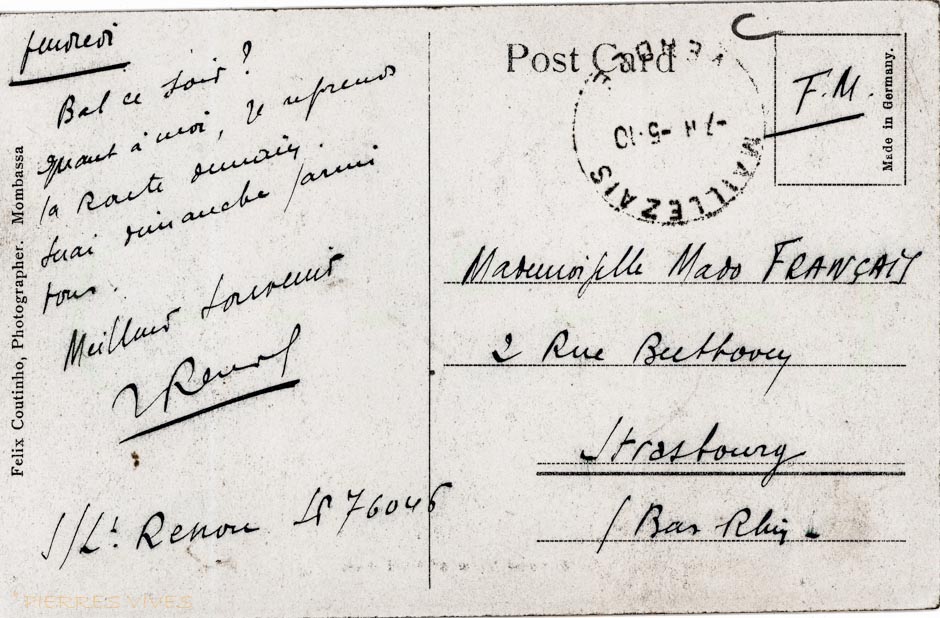 vendredi
Bal ce soir ?
quant à moi, je reprends
la Route demain.
Serai dimanche parmi
tous.
Meilleurs souvenirs
Renou
S/Lt. Renou SP 76046
Felix Coutinho, Photographer. Mombassa
PIERRES VIVES
Post Card
MAILLEZAIS
-7 H -5-10
F.M.
Made in Germany.
Mademoiselle Mado FRANÇAIS
2 Rue Beethoven
Strasbourg
/ Bas Rhin -